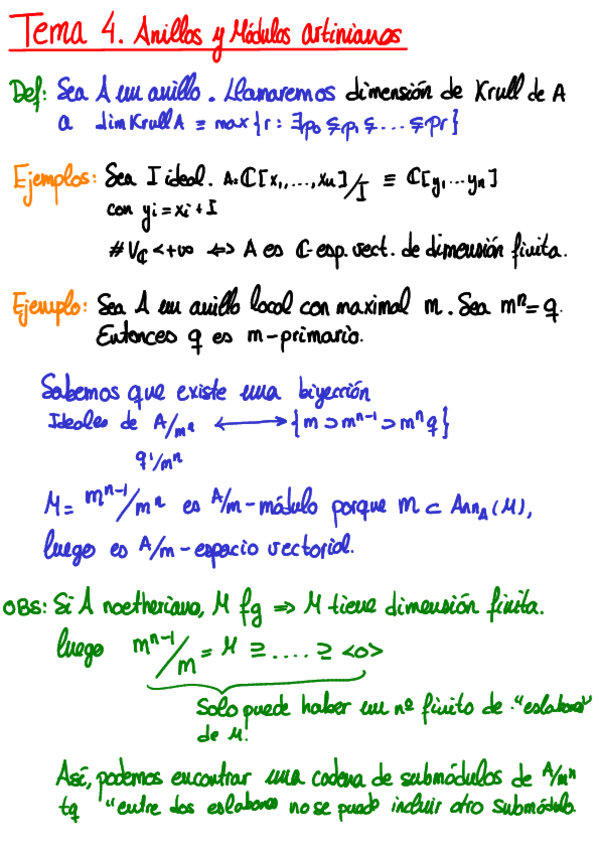 Tema 4. Anillos y Módulos artinianos
Def: Sea A un anillo. Llamaremos dimensión de Krull de A
a dimKrull A ≡ max{r : ∃p₀ ⊊ p₁ ⊊ ... ⊊ pr}
Ejemplos: Sea I ideal. A=ℂ[x₁,...,xn]/I ≡ ℂ[y₁...yn]
con yi = xi + I
# Vℂ < +∞ ⇔ A es ℂ-esp. vect. de dimensión finita.
Ejemplo: Sea A un anillo local con maximal m. Sea mⁿ = q.
Entonces q es m-primario.
Sabemos que existe una biyección
Ideales de A/mⁿ ⟷ {m ⊃ mⁿ⁻¹ ⊃ mⁿ q}
q'/mⁿ
M = mⁿ⁻¹/mⁿ es A/m-módulo porque m ⊂ AnnA(M),
luego es A/m-espacio vectorial.
OBS: Si A noetheriano, M fg ⇒ M tiene dimensión finita.
luego mⁿ⁻¹/m = M ⊇ .... ⊇ <0>
Solo puede haber un nº finito de "eslabones"
de M.
Así, podemos encontrar una cadena de submódulos de A/mⁿ
tq "entre dos eslabones no se puede incluir otro submódulo.